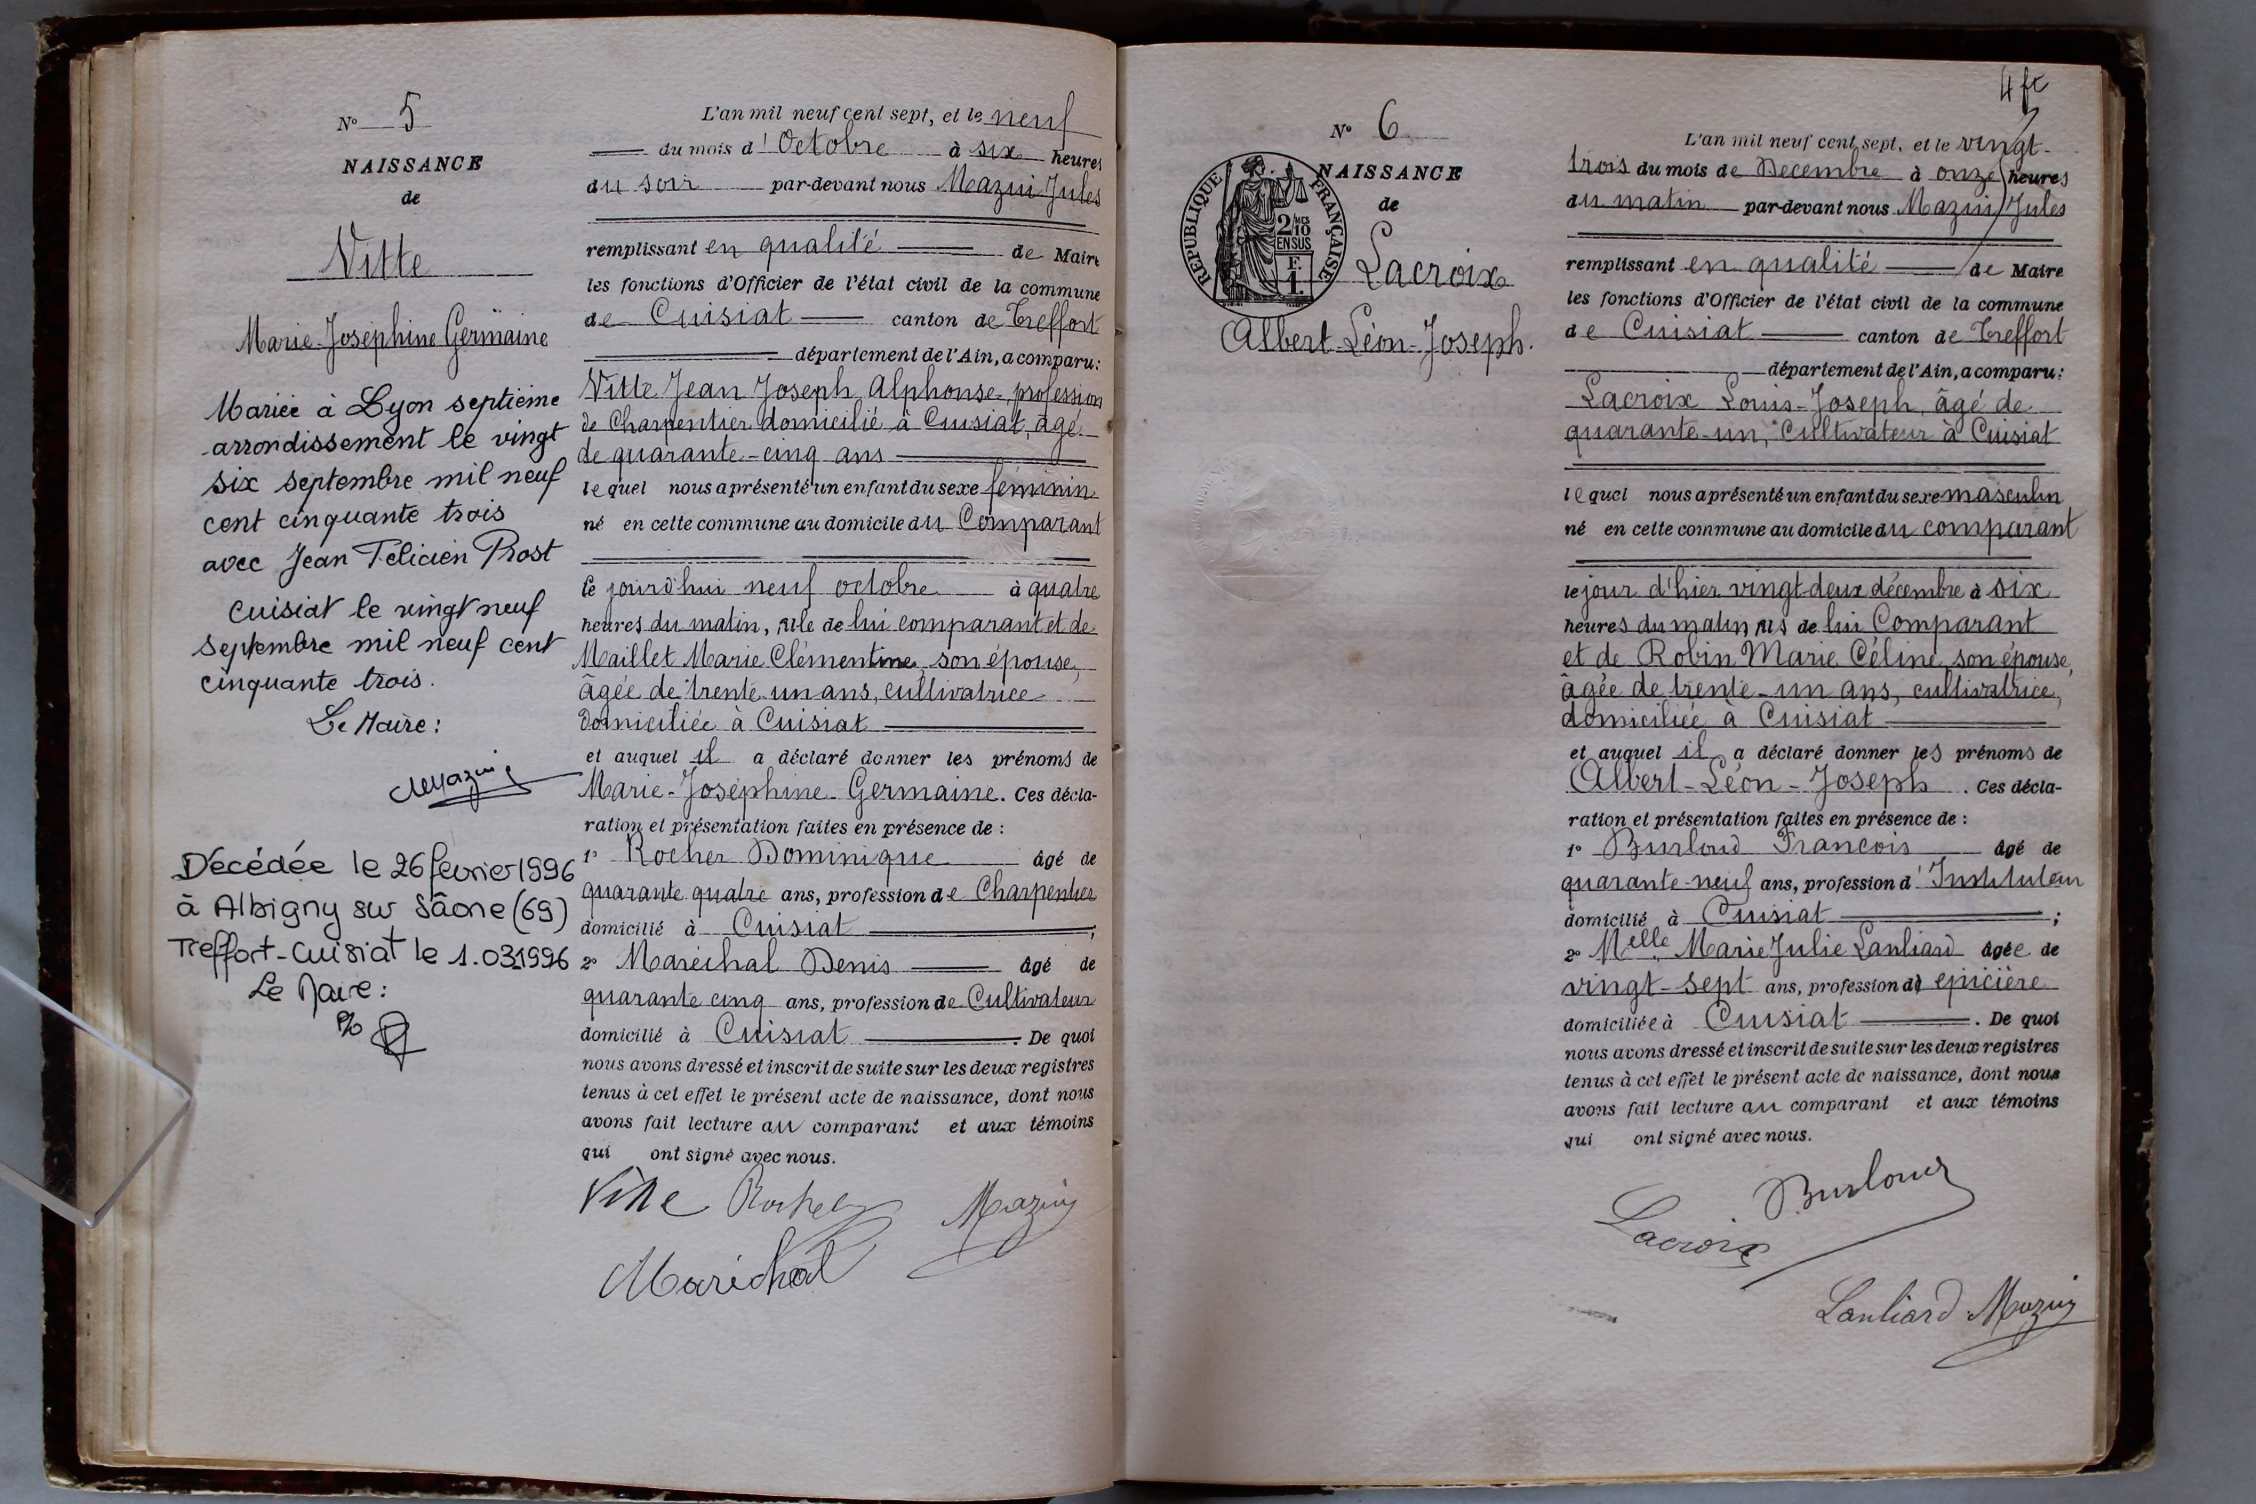 N° 5
NAISSANCE
de
Vitte
Marie-Joséphine Germaine
Mariée à Lyon septième
arrondissement le vingt
six septembre mil neuf
cent cinquante trois
avec Jean Felicien Prost
Cuisiat le vingt neuf
septembre mil neuf cent
cinquante trois.
Le Maire :
Décédée le 26 février 1996
à Albigny sur Sâone (69)
Treffort-Cuisiat le 1.03.1996
Le Maire :
P/o
L'an mil neuf cent sept, et le neuf
du mois d'Octobre à six heures
du soir par-devant nous Mazuy Jules
remplissant en qualité de Maire
les fonctions d'Officier de l'état civil de la commune
de Cuisiat canton de Treffort
département de l'Ain, a comparu :
Vitte Jean Joseph Alphonse, profession
de Charpentier domicilié à Cuisiat, âgé
de quarante-cinq ans
lequel nous a présenté un enfant du sexe féminin
né en cette commune au domicile du Comparant
le jourd'hui neuf octobre à quatre
heures du matin, fille de lui comparant et de
Maillet Marie Clémentine, son épouse,
âgée de trente un ans, cultivatrice
domiciliée à Cuisiat
et auquel il a déclaré donner les prénoms de
Marie-Joséphine-Germaine. Ces décla-
ration et présentation faites en présence de :
1° Rocher Dominique âgé de
quarante quatre ans, profession de Charpentier
domicilié à Cuisiat ;
2° Maréchal Denis âgé de
quarante cinq ans, profession de Cultivateur
domicilié à Cuisiat . De quoi
nous avons dressé et inscrit de suite sur les deux registres
tenus à cet effet le présent acte de naissance, dont nous
avons fait lecture au comparant et aux témoins
qui ont signé avec nous.
Vitte Rocher Mazuy
Maréchal
4
N° 6
NAISSANCE
de
RÉPUBLIQUE FRANÇAISE
2/10 MES
EN SUS
F.
1.
Lacroix
Albert-Léon-Joseph.
L'an mil neuf cent sept, et le vingt-
trois du mois de Decembre à onze heures
du matin par-devant nous Mazuy Jules
remplissant en qualité de Maire
les fonctions d'Officier de l'état civil de la commune
de Cuisiat canton de Treffort
département de l'Ain, a comparu :
Lacroix Louis-Joseph, âgé de
quarante-un, Cultivateur à Cuisiat
lequel nous a présenté un enfant du sexe masculin
né en cette commune au domicile du comparant
le jour d'hier vingt-deux décembre à six
heures du matin fils de lui Comparant
et de Robin Marie Céline, son épouse,
âgée de trente-un ans, cultivatrice,
domiciliée à Cuisiat
et auquel il a déclaré donner les prénoms de
Albert-Léon-Joseph . Ces décla-
ration et présentation faites en présence de :
1° Burloud François âgé de
quarante-neuf ans, profession d'Instituteur
domicilié à Cuisiat ;
2° Melle Marie Julie Lanliard âgée de
vingt-sept ans, profession d' épicière
domiciliée à Cuisiat . De quoi
nous avons dressé et inscrit de suite sur les deux registres
tenus à cet effet le présent acte de naissance, dont nous
avons fait lecture au comparant et aux témoins
qui ont signé avec nous.
Burloud
Lacroix
Lanliard Mazuy